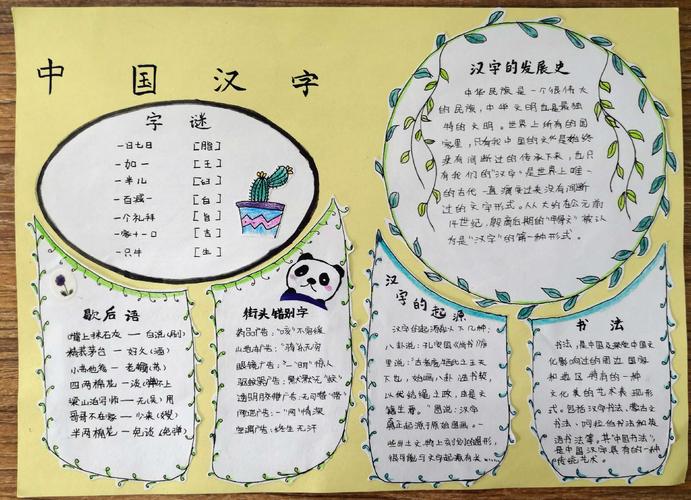 中国汉字
字谜
一日七日 [脂]
一如一 [王]
一半儿 [臼]
一百减一 [白]
一个礼拜 [旨]
一家十一口 [吉]
一只牛 [生]
汉字的发展史
中华民族是一个很伟大
的民族,中华文明也是最独
特的文明。世界上所有的国
家里,只有我中国的文化是始终
没有间断过的传承下来,也只
有我们的“汉字”是世界上唯一
的古代一直演变过来没有间断
过的文字形式。从大约在公元前
14世纪,殷商后期的“甲骨文”被认
为是“汉字”的第一种形式。
歇后语
墙上抹石灰——白说(刷)
精装茅台——好久(酒)
四两棉花——谈(弹)不上
梁山泊军师——无(吴)用
半两棉花——免谈(免弹)
街头错别字
药品广告:“咳”不容缓
山地车广告:“骑”乐无穷
眼镜广告:一“明”惊人
驱蚊器广告:默默无“蚊”
透明胶带广告:无可“带”
网吧广告:一“网”情深
空调广告:终生无汗
汉字的起源
汉字的起源有以下几种:
八卦说:孔安国《尚书》序
里说:“古者庖牺氏之王天
下也,始画八卦,造书契,
以代结绳之政,由是文
籍生焉。”图说:汉字
真正起源于原始图画。一
些出土文物上刻划的图形,
很可能与文字起源有关
书法
书法,是中国及深受中国文
化影响过的周边国家
和地区特有的一种
文化美的艺术表现形
式。包括汉字书法、蒙古文
书法、阿拉伯书法和英
语书法等。其“中国书法”,
是中国汉字具有的一种
传统艺术。